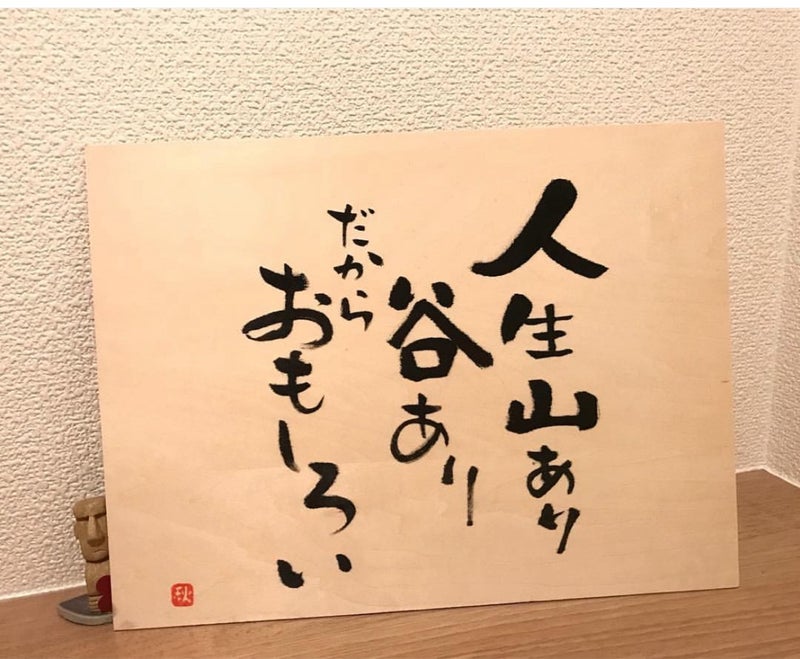 人生山あり
谷あり
だから
おもしろい
秋